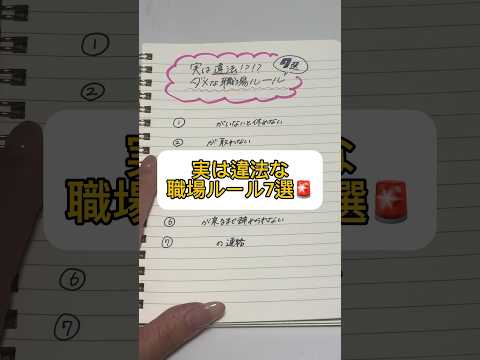 実は違法!?!?
ダメな職場ルール
7選
① がいないと休めない
② が取れない
実は違法な
職場ルール7選🚨
⑥ が来るまで辞められない
⑦ の連絡
①
②
⑥
⑦